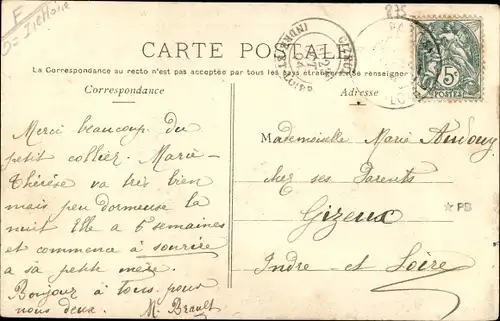 F
D = I et Loire
875
CARTE POSTALE
La Correspondance au recto n'est pas acceptée par tous les pays étrangers. (Se renseigner
Correspondance
Adresse
GIZEUX
INDRE-ET-LOIRE
5c
POSTES
Merci beaucoup du
petit collier. Marie-
Thérèse va très bien
mais peu dormeuse la
nuit Elle a 6 semaines
et commence à sourire
a sa petite mère.
Bonjour à tous pour
nous deux. M. Brault
Mademoiselle Marie Audouy
chez ses Parents
Gizeux
Indre et Loire
PB